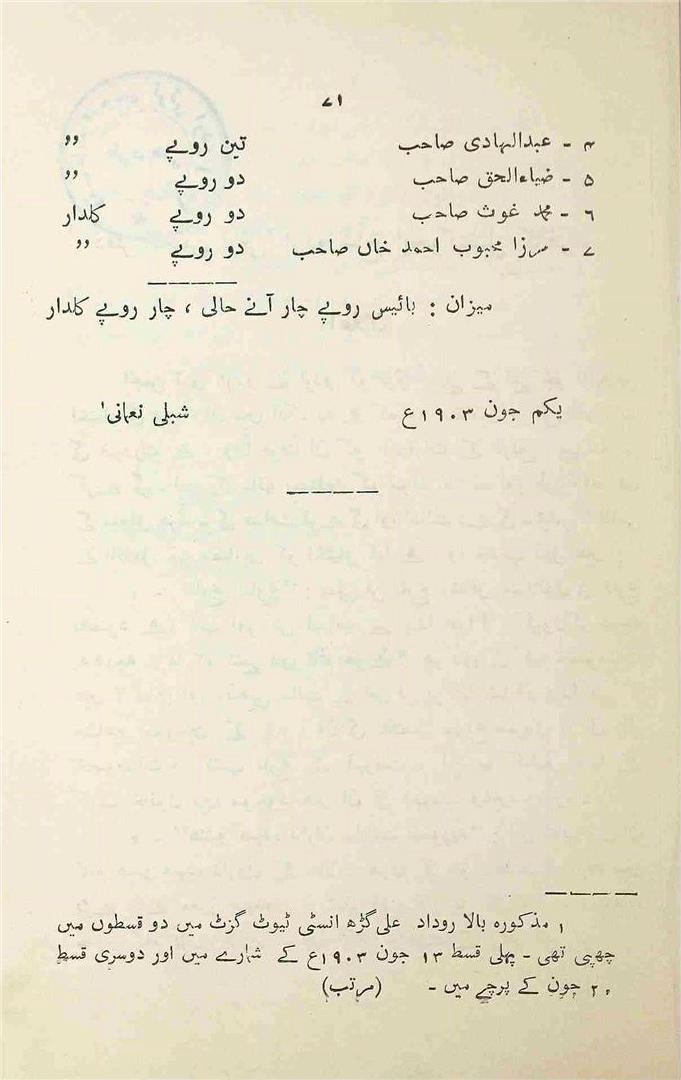 ۷۱
۴ - عبدالہادی صاحب تین روپے ,,
۵ - ضیاءالحق صاحب دو روپے ,,
۶ - محمد غوث صاحب دو روپے کلدار
۷ - مرزا محبوب احمد خاں صاحب دو روپے ,,
میزان : بائیس روپے چار آنے حالی ، چار روپے کلدار
یکم جون ۱۹۰۳ع شبلی نعمانی'
۱ مذکورہ بالا روداد علی گڑھ انسٹی ٹیوٹ گزٹ میں دو قسطوں میں
چھپی تھی - پہلی قسط ۱۳ جون ۱۹۰۳ع کے شمارے میں اور دوسری قسط
۲۰ جون کے پرچے میں - (مرتب)